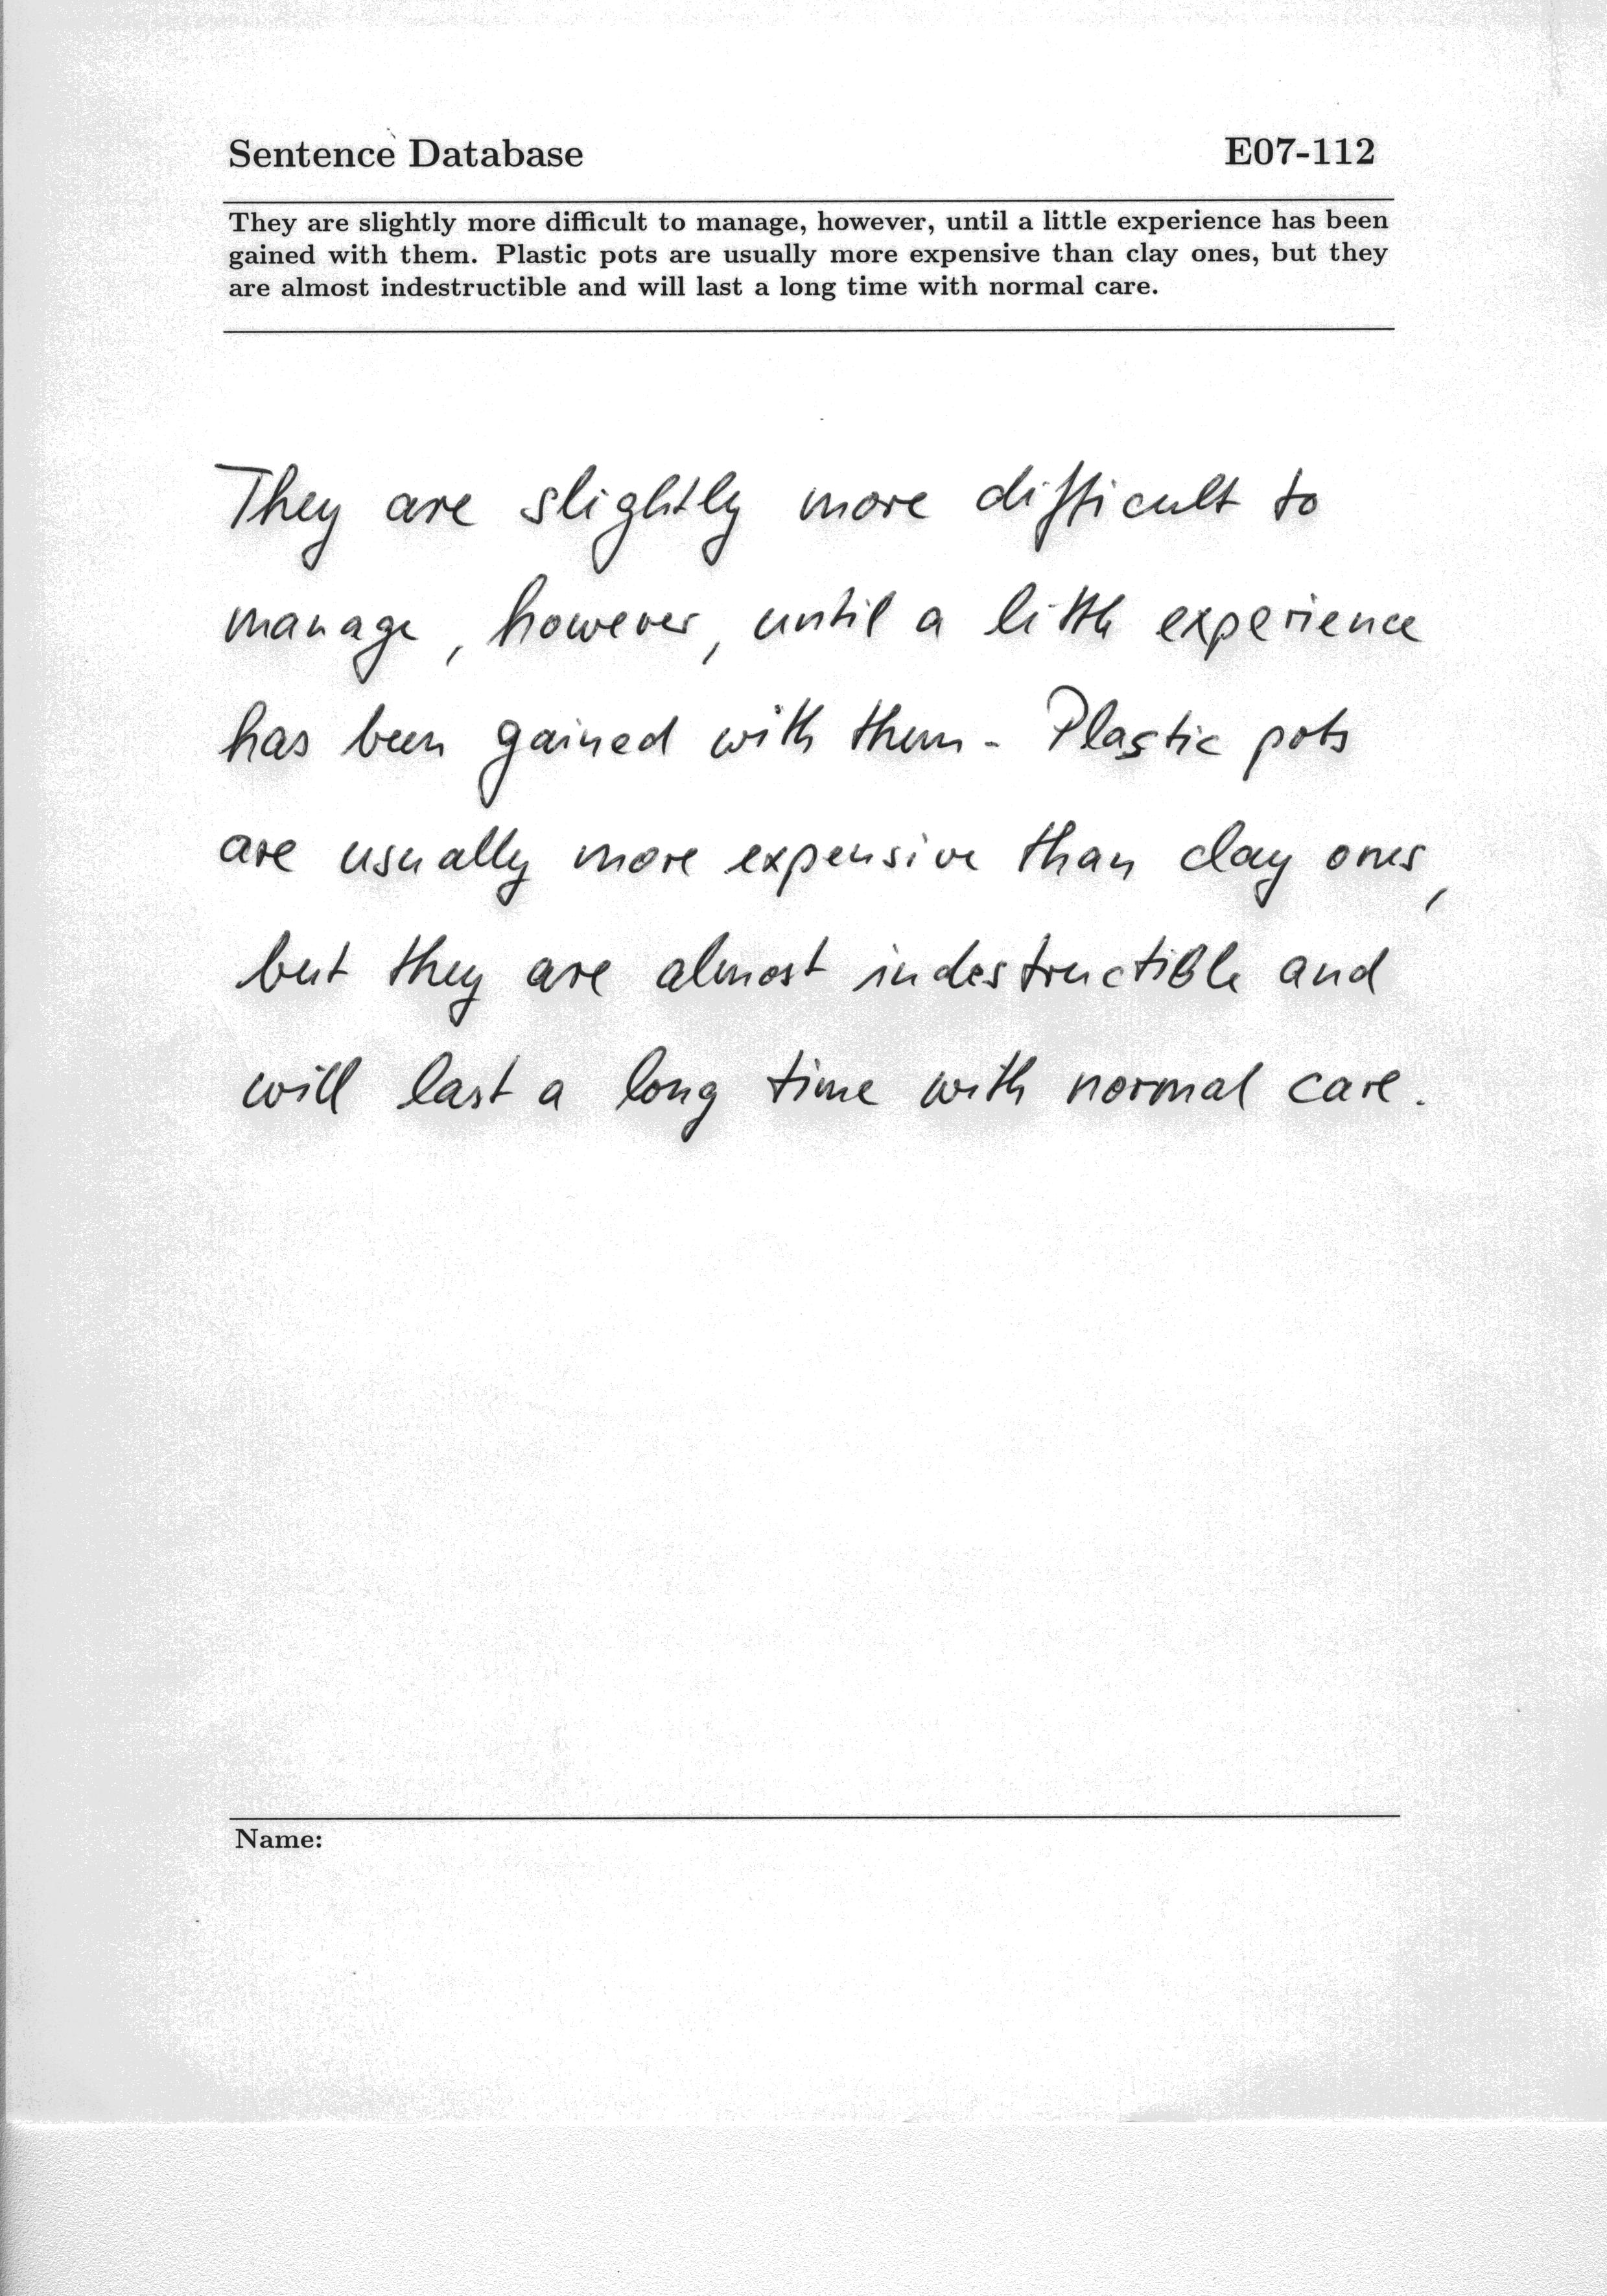 Sentence Database E07-112
They are slightly more difficult to manage, however, until a little experience has been
gained with them. Plastic pots are usually more expensive than clay ones, but they
are almost indestructible and will last a long time with normal care.
They are slightly more difficult to
manage, however, until a little experience
has been gained with them. Plastic pots
are usually more expensive than clay ones,
but they are almost indestructible and
will last a long time with normal care.
Name: